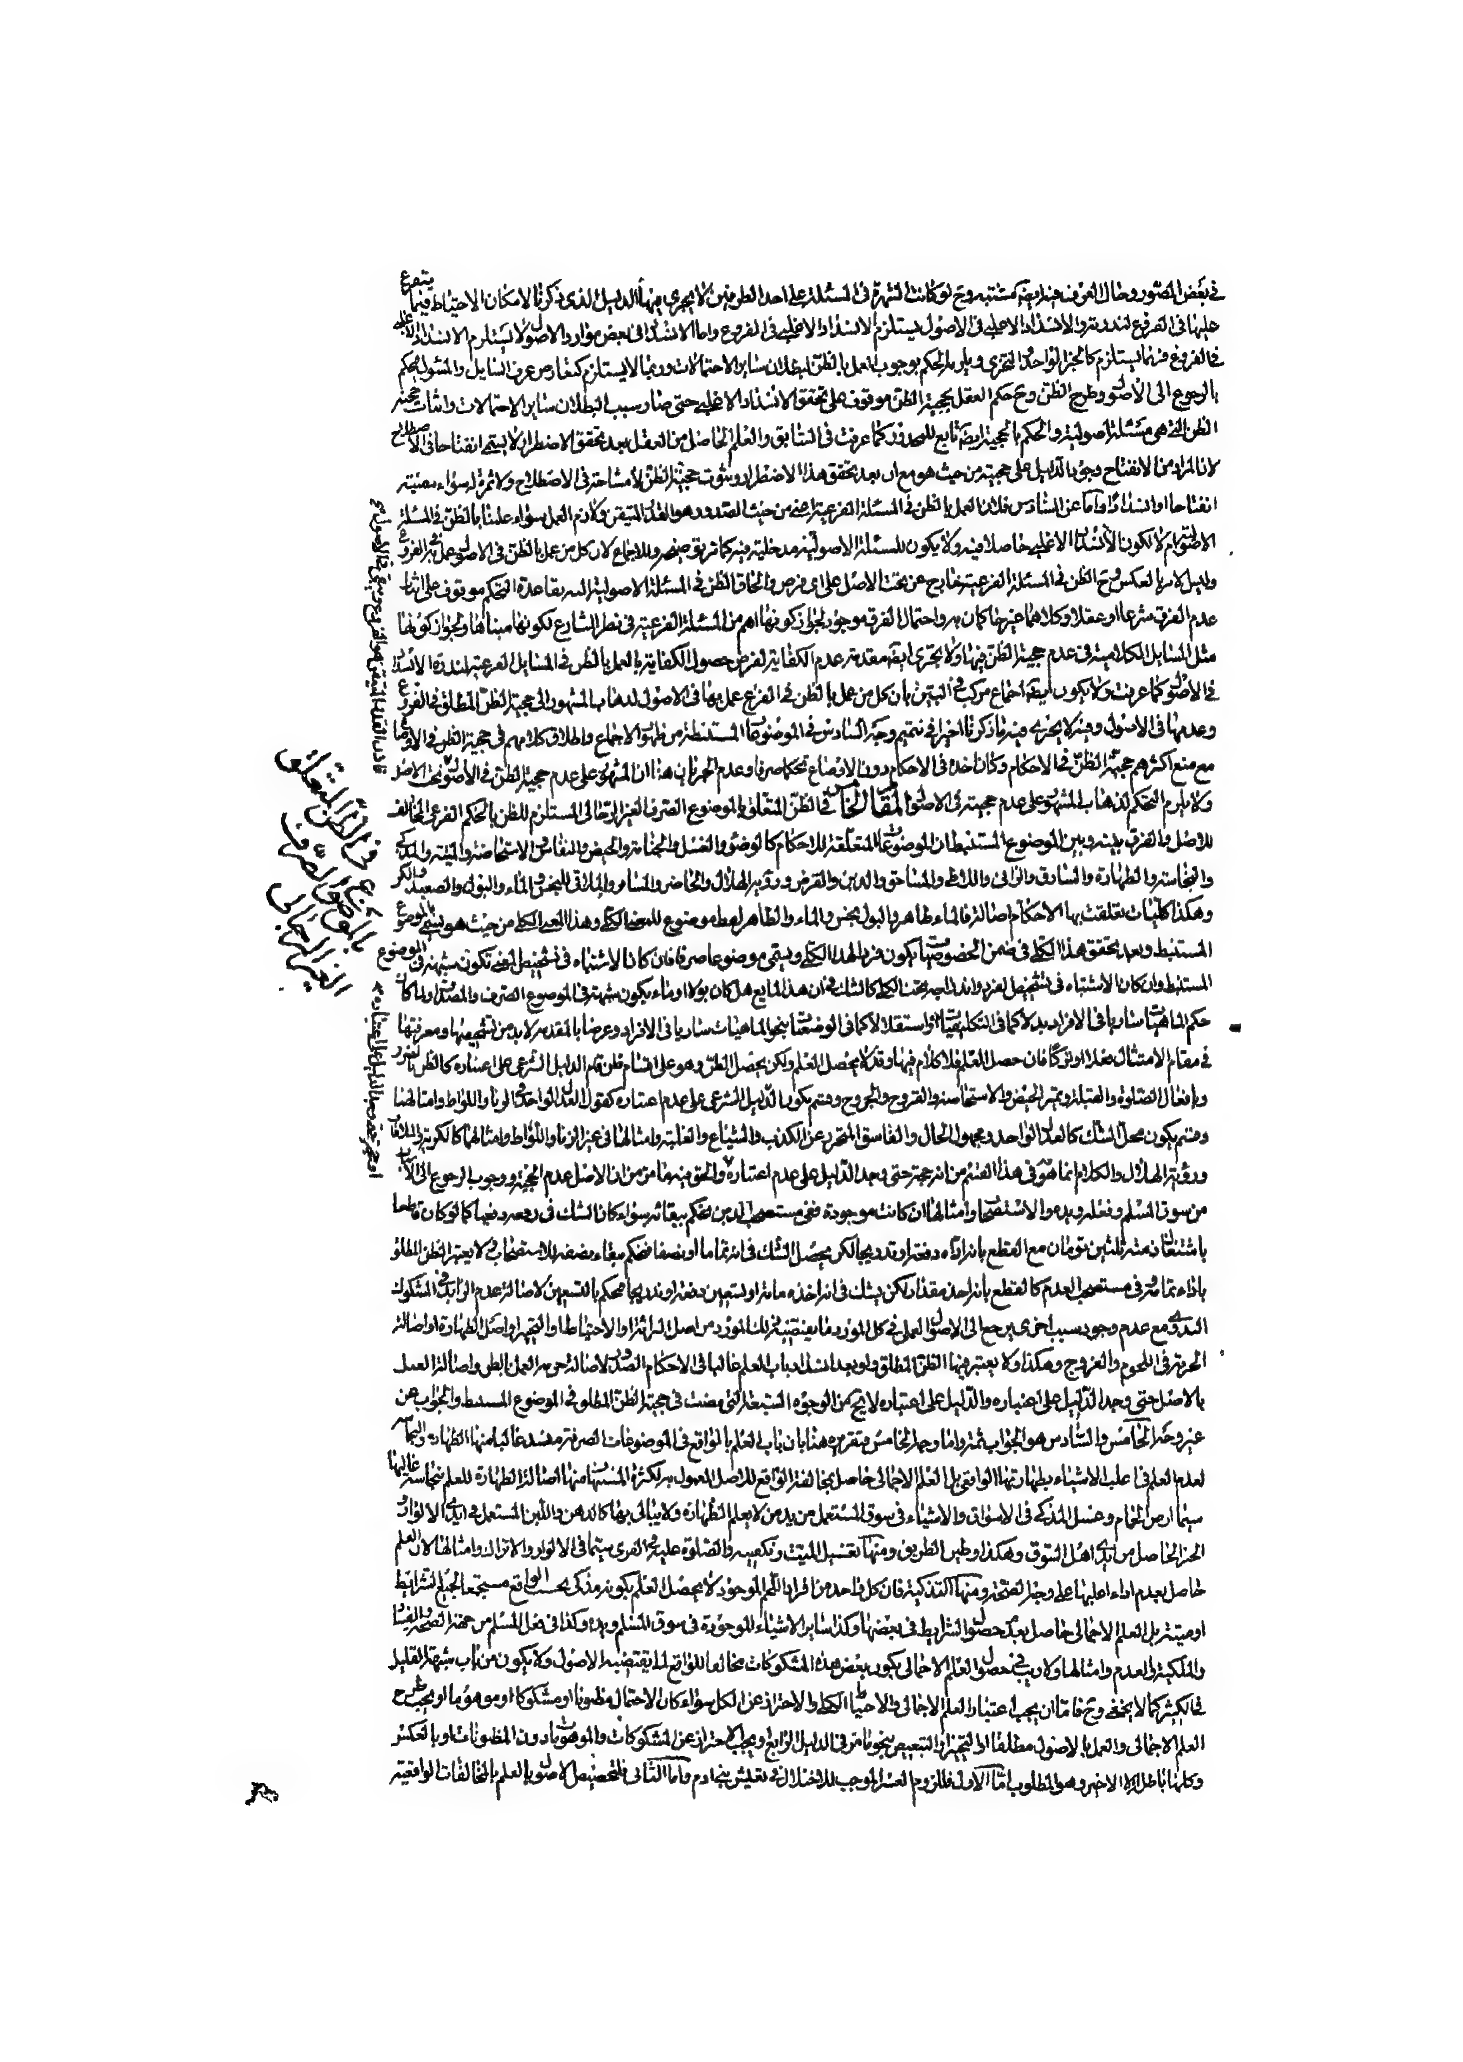 في بعض الصور وحال العرف فيه ايضا كمشتبه وح لو كانت الشهرة في المسئلة على احد الطرفين لا يجري فيها الدليل الذي ذكرنا لامكان الاحتياط فيما يتفرع
عليها في الفروع لندرته والانسداد الاغلبي في الاصول يستلزم الانسداد الاغلبي في الفروع واما الانسداد في بعض موارد الاصول لا يستلزم الانسداد
في الفروع فربما يستلزم كالخبر الواحد والتحري ويلزمه الحكم بوجوب العمل بالظن لبطلان ساير الاحتمالات وربما لا يستلزم كتعارض عرف السايل والمسئول فيحكم
بالرجوع الى الاصول وطرح الظن وح حكم العقل بحجية الظن موقوف على تحقق الانسداد الاغلبي حتى صار سبب البطلان ساير الاحتمالات واثبات حجية
الظن التي هي مسئلة اصولية والحكم بالحجية ايضا تابع للمحذور كما عرفت في السابق والعلم الحاصل من العقل بعد تحقق الاضطرار لا يسمى انفتاحا في الاصطلاح
لان المراد من الانفتاح وجود الدليل على حجيته من حيث هو مع ان بعد تحقق هذا الاضطرار وثبوت حجية الظن لا مشاحة في الاصطلاح ولا ثمرة لسواء سميته
انفتاحا او انسدادا واما عن السادس فلان العمل بالظن في المسئلة الفرعية من حيث الصدور هو القدر المتيقن ولازم العمل سواء علمنا بالظن في المسئلة
الاصولية ام لا لكون الانسداد الاغلبي حاصلا فيه ولا يكون للمسئلة الاصولية مدخلية فيه كما مر وللاجماع لان كل من عمل بالظن في الاصول عمل به في الفروع
ولا يلزم بالعكس وح الظن في المسئلة الفرعية خارج عن تحت الاصل على اي فرض والحاق الظن في المسئلة الاصولية اليه بقاعدة التحكم موقوف على اثبات
عدم الفرق شرعا او عقلا وكلاهما غير واحتمال الفرق موجود لجواز كونها اهم من المسئلة الفرعية في نظر الشارع لكونها مبناها ولجواز كونها
مثل المسايل الكلامية في عدم حجية الظن فيها ولا يجري ايضا مقدمة عدم الكفاية لفرض حصول الكفاية بالعمل بالظن في المسايل الفرعية لندرة الانسداد
في الاصول كما عرفت ولا يكون ايضا اجماع مركب في البين بان كل من عمل بالظن في الفروع عمل بها في الاصول لذهاب المشهور الى حجية الظن المطلق في الفروع
وعدمها في الاصول وفيه لا يجري فيه ما ذكرنا اخيرا في تتميم وجه السادس في الموضوعات المستنبطة من ظهور الاجماع واطلاق كلامهم في حجية الظن في الاوضاع
مع منع اكثرهم حجية الظن في الاحكام وكان اخذه في الاحكام دون الاوضاع تحكما صرفا وعدم الجريان هذا ان المشهور على عدم حجية الظن في الاصول تحت الاصل
ولا يلزم التحكم لذهاب المشهور على عدم حجيته في الاصول المقال الخامس في الظن المتعلق بالموضوع الصرف الغير الرجالي المستلزم للظن بالحكم الفرعي المخالف
للاصل والفرق بينه وبين الموضوع المستنبط ان الموضوعات المتعلقة للاحكام كالوضو والغسل والجنابة والحيض والنفاس والاستحاضة والميتة والمذكى
والنجاسة والطهارة والسارق والزاني واللائط والمساحق والدين والقرض ورؤية الهلال والحاضر والمسافر والملاقي للنجس والماء والبول والصعيد والكر
وهكذا كليات تعلقت بها الاحكام اصالة فالماء طاهر والبول نجس والماء والطاهر لفظ موضوع للمعنى الكلي وهذا المعنى الكلي من حيث هو يسمى بالموضوع
المستنبط وبعد تحقق هذا الكلي في ضمن الخصوصيات يكون فردا لهذا الكلي ويسمى موضوعا صرفا فان كان الاشتباه في تشخيص المعنى تكون شبهة في الموضوع
المستنبط وان كان الاشتباه في تشخيص الفرد واندراجه تحت الكلي كالشك في ان هذا المايع هل كان بولا او ماء يكون شبهة في الموضوع الصرف والمصداق ولما كان
حكم الماهيات ساريا في الافراد بدلا كما في التكليفيات او استقلالا كما في الوضعيات بنحو الماهيات ساريا في الافراد وعرضا بالمقدمة لا بد من تشخيصها ومعرفتها
في مقام الامتثال فعلا او تركا فان حصل العلم فلا كلام فيها وقد لا يحصل العلم ولكن يحصل الظن وهو على اقسام ظن قام الدليل الشرعي على اعتباره كالظن بالفرد
وبافعال الصلوة والقبلة وتميز الحيض والاستحاضة والقروح والجروح وقسم يكون الدليل الشرعي على عدم اعتباره كقول العدل الواحد في الزنا واللواط وامثالهما
وقسم يكون محل الشك كالعدل الواحد ومجهول الحال والفاسق المتحرز عن الكذب والشياع والغلبة وامثالها في غير الزنا واللواط وامثالهما كالكرية والملاقات
ورؤية الهلال والكلام انما هو في هذا القسم من انه حجة حتى وجد الدليل على عدم اعتباره او الحق فيها ما مر من ان الاصل عدم الحجية ووجوب الرجوع الى الاسباب
من سوق المسلم وفعله ويده والاستصحاب وامثالها ان كانت موجودة ففي مستصحب الدين نحكم ببقائه سواء كان الشك في رفعه كما لو كان قاطعا
باشتغال ذمته بثلثين تومان مع القطع بانه اداه دفعة او تدريجا لكن يحصل الشك في انه تماما او نصفا فنحكم ببقاء نصفه للاستصحاب ولا يعتبر الظن المطلق
باداء تمامه وفي مستصحب العدم كالقطع بانه اخذ مقدارا لكن يشك في انه اخذه مائة او تسعين دفعة او تدريجا فنحكم بالتسعين لاصالة عدم الزايد في المشكوك
البدوي ومع عدم وجود سبب اخرى يرجع الى الاصول العملي في كل المورد ما يقتضيه ذلك المورد من اصل البرائة والاحتياط والتخيير واصل الطهارة او اصالة
الحرمة في اللحوم والفروج وهكذا ولا يعتبر فيها الظن المطلق ولو بعد انسداد باب العلم غالبا في الاحكام الصدورية لاصالة حرمة العمل بالظن واصالة العمل
بالاصل حتى وجد الدليل على اعتباره والدليل على اعتباره لا يخ من الوجوه السبعة التي مضت في حجية الظن المطلق في الموضوع المستنبط والجواب عن
غير وجه الخامس والسادس هو الجواب ثمة واما وجه الخامس وتقريره هنا بان باب العلم بالواقع في الموضوعات الصرفة منسد غالبا منها الطهارة والنجاسة
لعدم العلم في اغلب الاشياء بطهارتها الواقعي بل العلم الاجمالي حاصل بمخالفة الواقع للاصل المعمول به لكثرة المشتبهات منها اصالة الطهارة للعلم بنجاسة غالبها
سيما ارض الحمام وغسل المذكى في الاسواق والاشياء في سوق المستعمل من يد من لا يعلم الطهارة ولا يبالي بها كالدهن واللبن المستعمل في ايدي الالوار و
الخبز الحاصل من ايدي اهل السوق وهكذا وطين الطريق ومنها تغسيل الميت وتكفينه والصلوة عليه في القرى سيما في الالوار والاتراك وامثالها لان العلم
حاصل بعدم اداء اغلبها على وجه الصحة ومنها التذكية فان كل واحد من افراد اللحم الموجود لا يحصل العلم بكونه مذكى بحسب الواقع مستجمعا لجميع الشرايط
او ميتة بل العلم الاجمالي حاصل بعدم حصول الشرايط في بعضها وكذا ساير الاشياء الموجودة في سوق المسلم ويده وكذا في فعل المسلم من جهة الصحة والفساد
والملكية والعدم وامثالها ولا ريب في حصول العلم الاجمالي بكون بعض هذه المشكوكات مخالفا للواقع لما يقتضيه الاصول ولا يكون من باب شبهة القليل
في الكثير كما لا يخفى وح فاما ان يجب اعتبار العلم الاجمالي والاحتياط الكلي والاحتراز عن الكل سواء كان الاحتمال مظنونا او مشكوكا او موهوما او يجب طرح
العلم الاجمالي والعمل بالاصول مطلقا او التخيير او التبعيض بنحو ما مر في الدليل الرابع ويجب الاحتراز عن المشكوكات والموهومات دون المظنونات او بالعكس
وكلها باطل الا الاخير وهو المطلوب اما الاول فللزوم العسر الموجب للاختلال في تعيش بني ادم واما الثاني فلتخصيص الاصول بالعلم بالمخالفات الواقعية
في الظن المتعلق
بالموضوع الصرف
الغير الرجالي